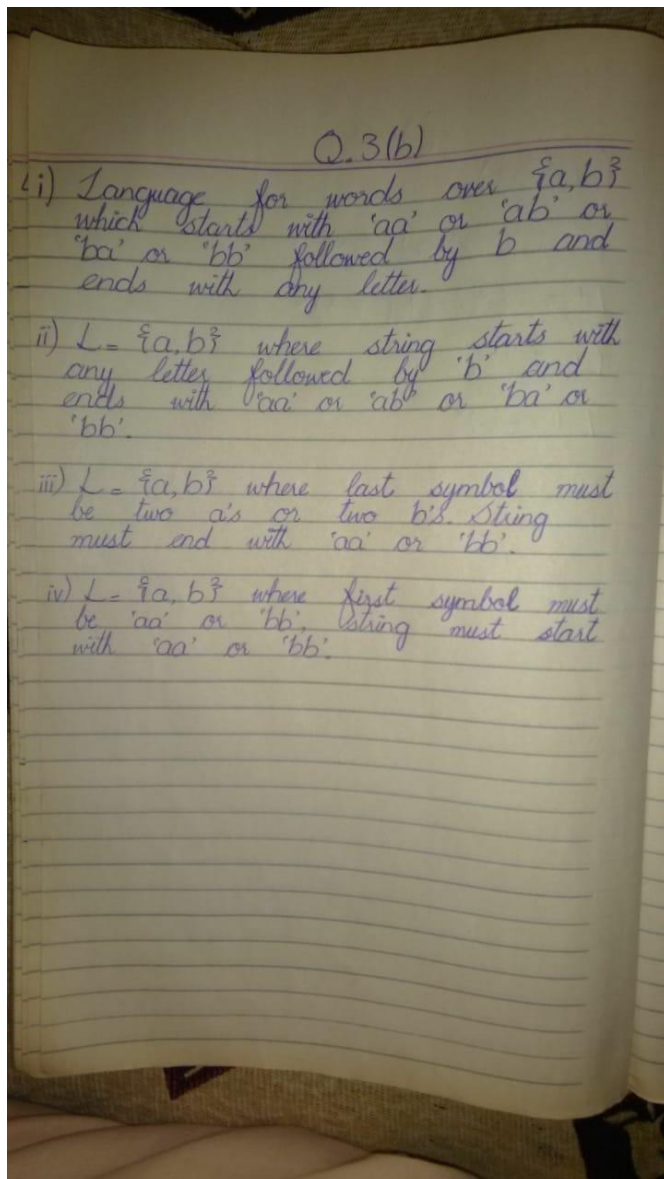 Q.3(b)
i) Language for words over {a,b}
which starts with 'aa' or 'ab' or
'ba' or 'bb' followed by b and
ends with any letter.
ii) L = {a,b} where string starts with
any letter followed by 'b' and
ends with 'aa' or 'ab' or 'ba' or
'bb'.
iii) L = {a,b} where last symbol must
be two a's or two b's. String
must end with 'aa' or 'bb'.
iv) L = {a,b} where first symbol must
be 'aa' or 'bb'. String must start
with 'aa' or 'bb'.